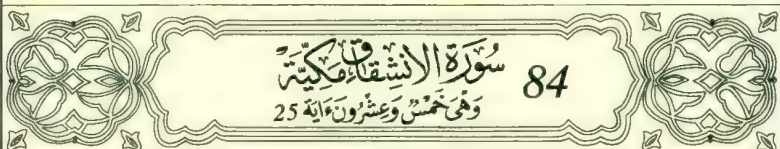 سُورَةُ الِانْشِقَاقِ مَكِّيَّةٌ 84
وَهْيَ خَمْسٌ وَعِشْرُونَ ءَايَة 25